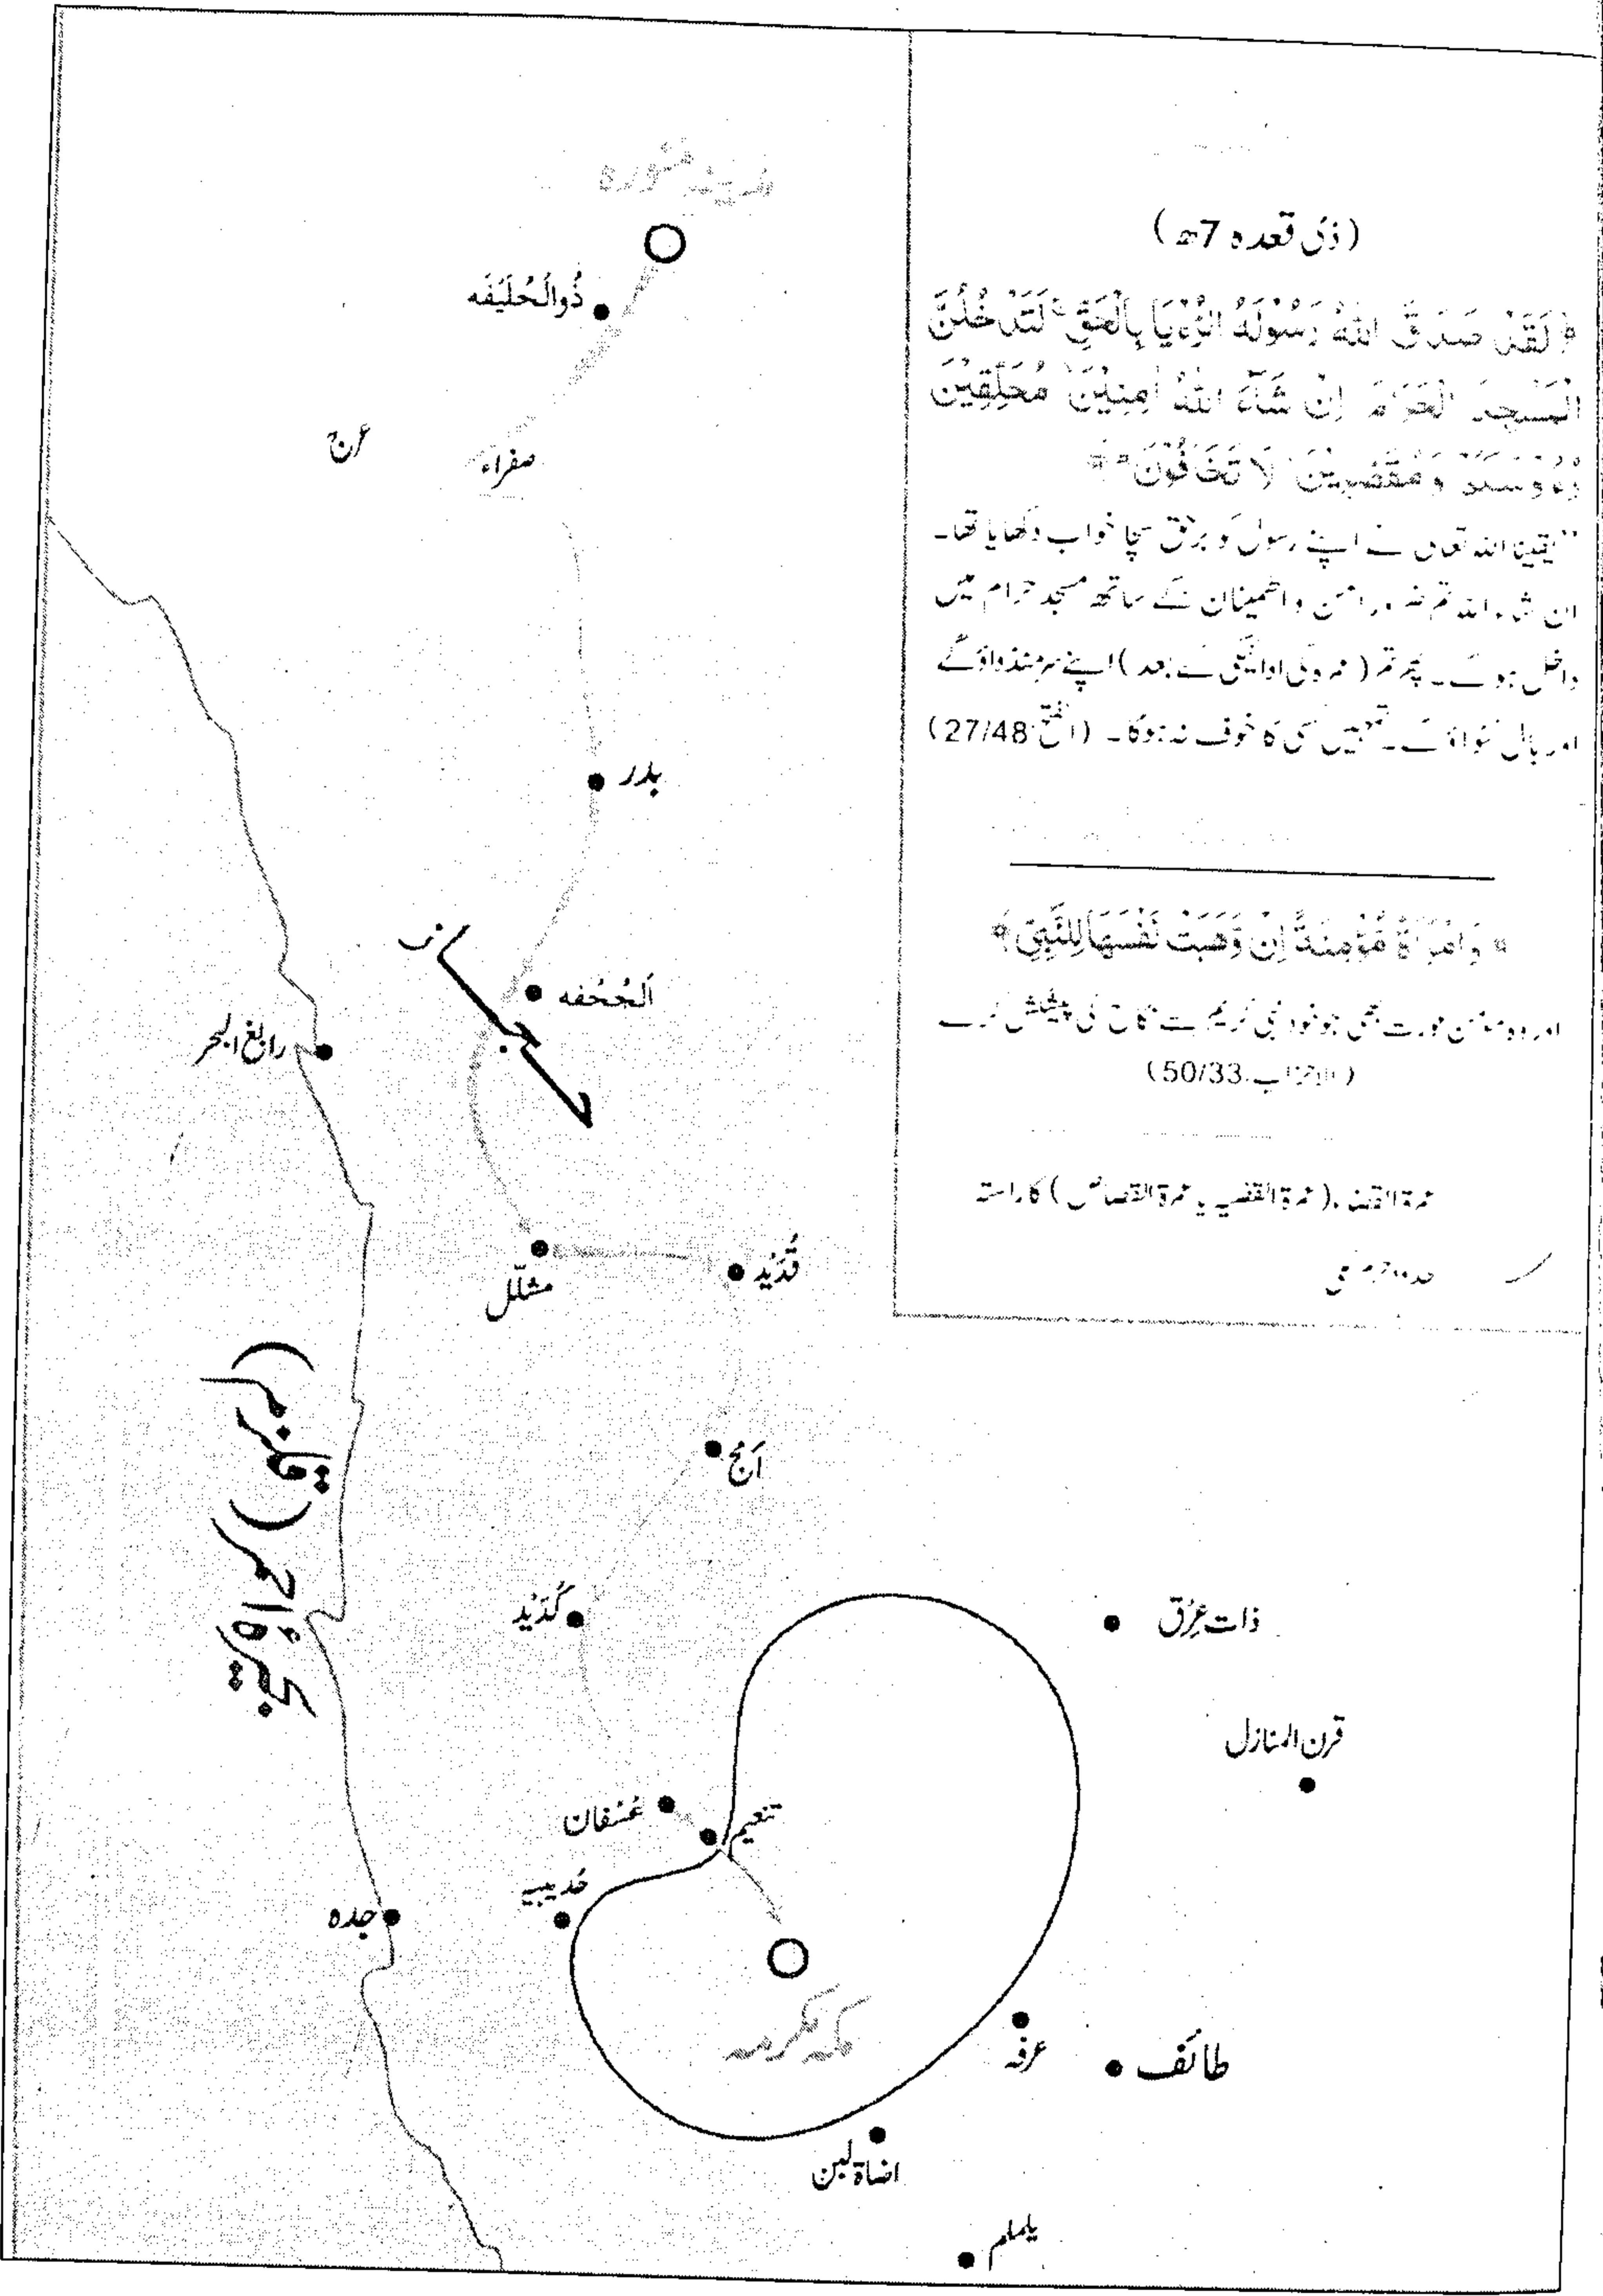 (ذی قعدہ 7ھ)
﴿لَقَدْ صَدَقَ اللّٰهُ رَسُوْلَهُ الرُّءْيَا بِالْحَقِّ ۚ لَتَدْخُلُنَّ
الْمَسْجِدَ الْحَرَامَ اِنْ شَآءَ اللّٰهُ اٰمِنِيْنَ ۙ مُحَلِّقِيْنَ
رُءُوْسَكُمْ وَمُقَصِّرِيْنَ ۙ لَا تَخَافُوْنَ ۭ﴾
’’یقیناً اللہ تعالیٰ نے اپنے رسول کو برحق سچا خواب دکھایا تھا۔
ان شاء اللہ تم ضرور امن و اطمینان کے ساتھ مسجد حرام میں
داخل ہو گے۔ پھر تم (عمرہ کی ادائیگی کے بعد) اپنے سر منڈواؤ گے
اور بال کتراؤ گے۔ تمہیں کسی کا خوف نہ ہوگا۔ (الفتح:27/48)
﴿وَامْرَاَةً مُّؤْمِنَةً اِنْ وَّهَبَتْ نَفْسَهَا لِلنَّبِيِّ﴾
اور وہ مومن عورت بھی جو خود نبی کریم سے نکاح کی پیشکش کرے
(الاحزاب:50/33)
عمرۃ القضاء (عمرۃ القضیہ یا عمرۃ القصاص) کا راستہ
حدود حرم مکی
مدینہ منورہ
ذُوالْحُلَیْفَه
عرج
صفراء
بدر
اَلْجُحْفه
رابغ البحر
مشلّل
قُدَیْد
اَمَج
بحیرۂ احمر (قلزم)
کُدَیْد
ذات عِرْق
قرن المنازل
عُسْفان
تنعیم
حُدیبیہ
جدہ
مکہ مکرمہ
عرفہ
طائف
اضاة لبن
یلملم